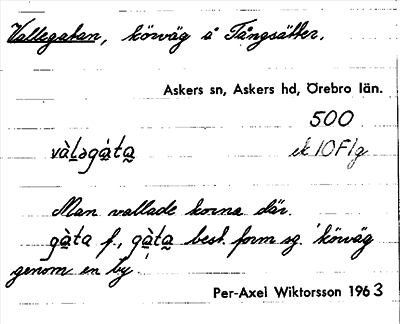 Vallegatan, körväg å Tångsätter.
Askers sn, Askers hd, Örebro län.
500
vàl̠əgá̠ta̰ ek 10F1g
Man vallade korna där.
gà̠ta f., gà̠ta̰ best. form sg. 'körväg
genom en by'
Per-Axel Wiktorsson 1963